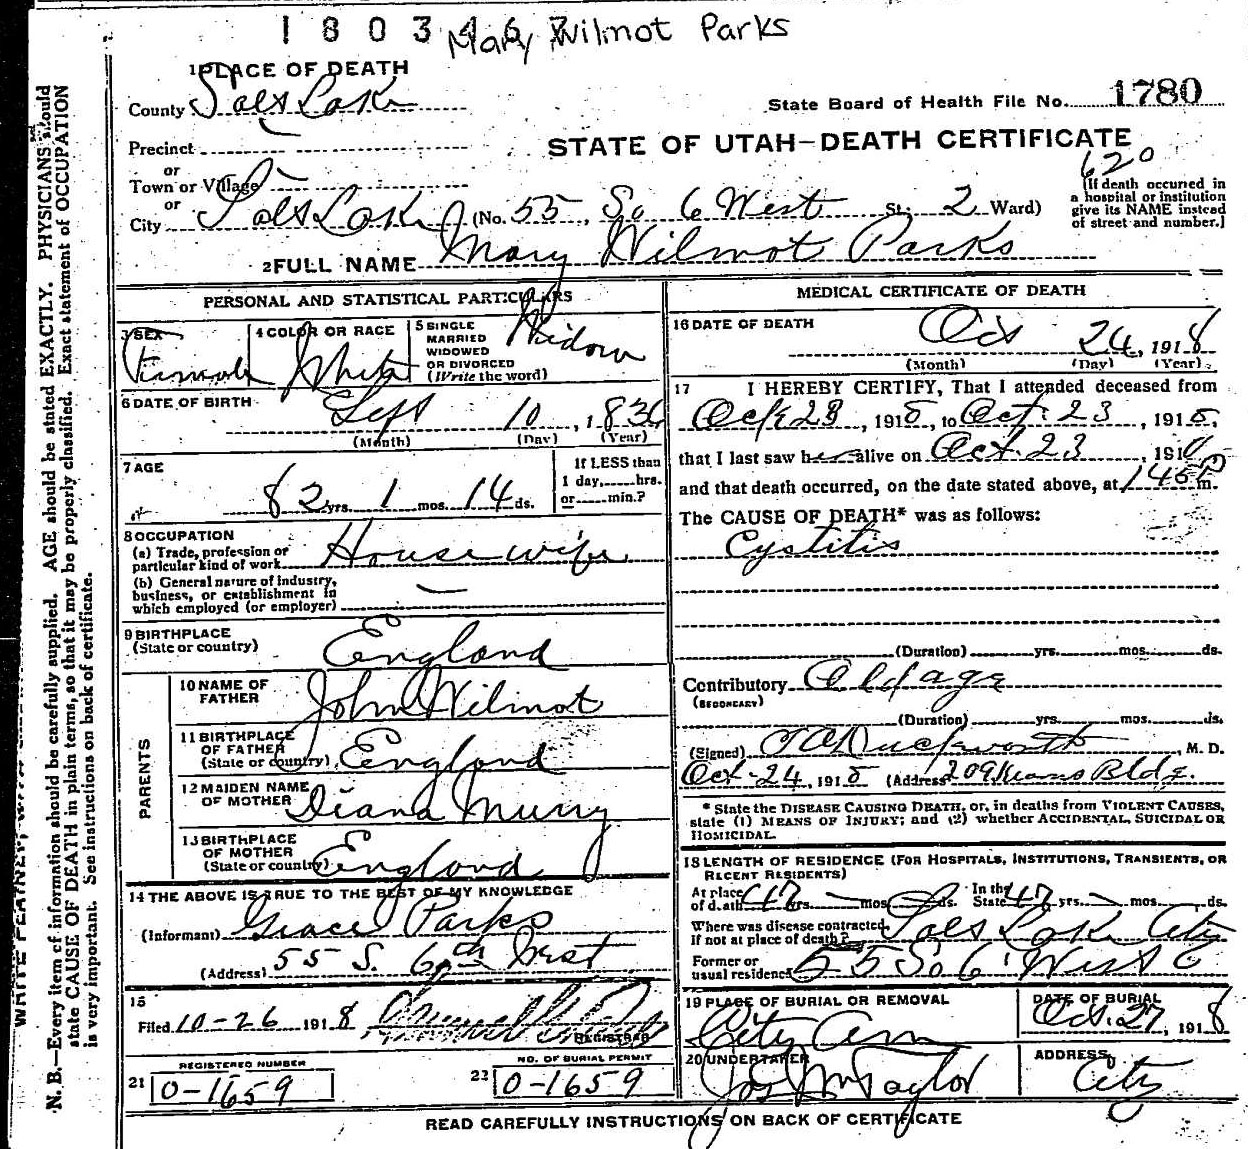 1 8 0 3 4 6
Mary Wilmot Parks
1 PLACE OF DEATH
County Salt Lake
State Board of Health File No. 1780
STATE OF UTAH—DEATH CERTIFICATE
Precinct
or
Town or Village
or
620
[If death occurred in
a hospital or institution
give its NAME instead
of street and number.]
City Salt Lake (No. 55, So 6 West St.; 2 Ward)
2 FULL NAME Mary Wilmot Parks
PERSONAL AND STATISTICAL PARTICULARS
3 SEX
Female
4 COLOR OR RACE
White
5 SINGLE
MARRIED
WIDOWED
OR DIVORCED
(Write the word)
Widow
6 DATE OF BIRTH Sept 10, 1836
(Month) (Day) (Year)
7 AGE
82 yrs. 1 mos. 14 ds.
If LESS than
1 day, hrs.
or min.?
8 OCCUPATION
(a) Trade, profession or
particular kind of work House wife
(b) General nature of industry,
business, or establishment in
which employed (or employer) —
9 BIRTHPLACE
(State or country) England
PARENTS
10 NAME OF
FATHER John Wilmot
11 BIRTHPLACE
OF FATHER
(State or country) England
12 MAIDEN NAME
OF MOTHER Diana Murry
13 BIRTHPLACE
OF MOTHER
(State or country) England
14 THE ABOVE IS TRUE TO THE BEST OF MY KNOWLEDGE
(Informant) Grace Parks
(Address) 55 S. 6th West
15
Filed 10-26 1918
REGISTRAR
REGISTERED NUMBER
21 0-1659
NO. OF BURIAL PERMIT
22 0-1659
MEDICAL CERTIFICATE OF DEATH
16 DATE OF DEATH
Oct 24, 1918
(Month) (Day) (Year)
17 I HEREBY CERTIFY, That I attended deceased from
Oct 23, 1918, to Oct. 23, 1918,
that I last saw her alive on Oct. 23, 1918
and that death occurred, on the date stated above, at 145 P m.
The CAUSE OF DEATH* was as follows:
Cystitis
(Duration) yrs. mos. ds.
Contributory Old age
(SECONDARY)
(Duration) yrs. mos. ds.
(Signed) Duckworth, M. D.
Oct-24, 1918 (Address) 209 Kearns Bldg.
* State the DISEASE CAUSING DEATH, or, in deaths from VIOLENT CAUSES,
state (1) MEANS OF INJURY; and (2) whether ACCIDENTAL, SUICIDAL OR
HOMICIDAL.
18 LENGTH OF RESIDENCE (FOR HOSPITALS, INSTITUTIONS, TRANSIENTS, OR
RECENT RESIDENTS)
At place
of death 47 yrs. mos. ds.
In the
State 47 yrs. mos. ds.
Where was disease contracted
If not at place of death? Salt Lake City
Former or
usual residence 55 So 6 West
19 PLACE OF BURIAL OR REMOVAL
City Cem
DATE OF BURIAL
Oct. 27, 1918
20 UNDERTAKER
Jos Wm Taylor
ADDRESS
City
READ CAREFULLY INSTRUCTIONS ON BACK OF CERTIFICATE
N. B.—Every item of information should be carefully supplied. AGE should be stated EXACTLY. PHYSICIANS should
state CAUSE OF DEATH in plain terms, so that it may be properly classified. Exact statement of OCCUPATION
is very important. See instructions on back of certificate.